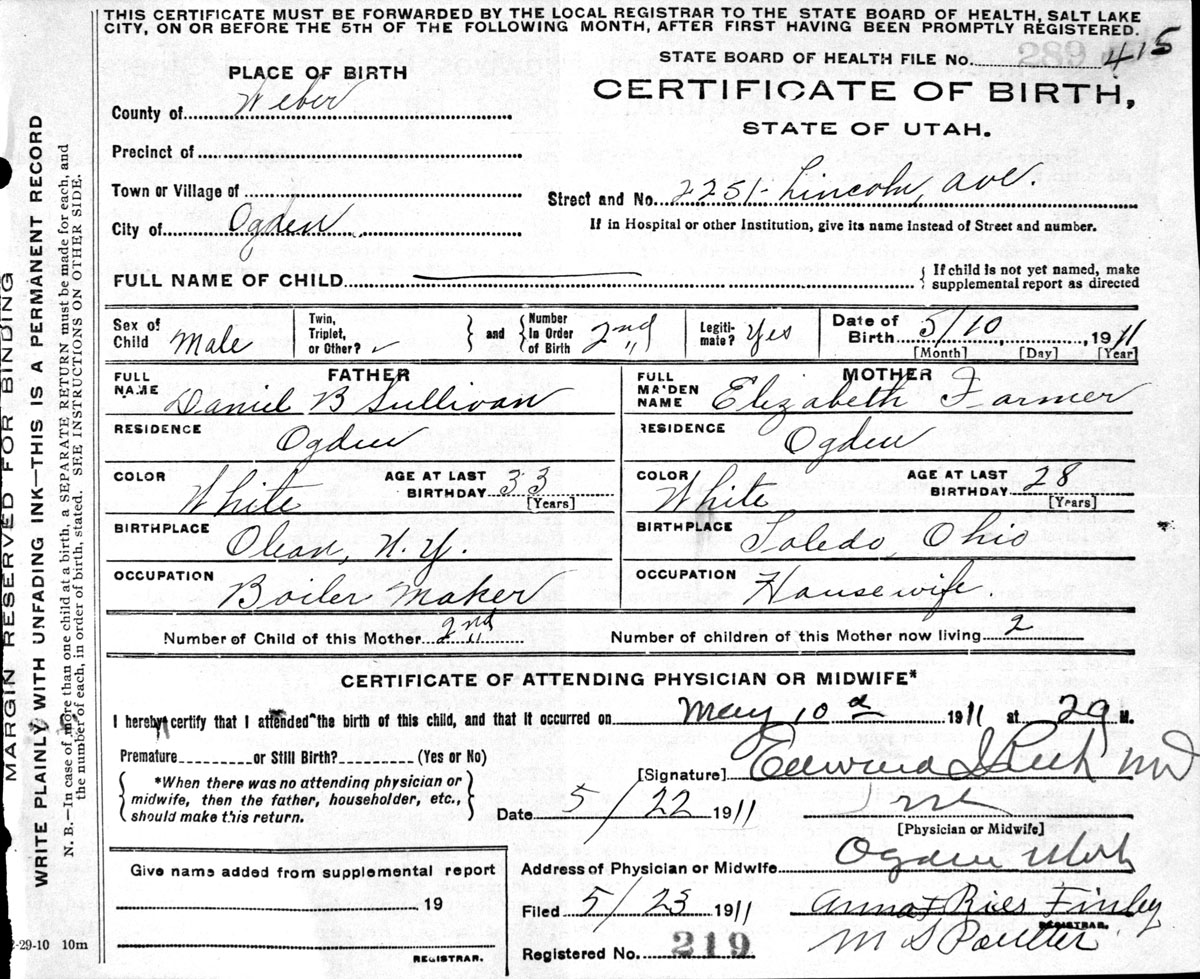 THIS CERTIFICATE MUST BE FORWARDED BY THE LOCAL REGISTRAR TO THE STATE BOARD OF HEALTH, SALT LAKE
CITY, ON OR BEFORE THE 5TH OF THE FOLLOWING MONTH, AFTER FIRST HAVING BEEN PROMPTLY REGISTERED.
STATE BOARD OF HEALTH FILE No. 415
PLACE OF BIRTH
CERTIFICATE OF BIRTH,
STATE OF UTAH.
County of Weber
Precinct of
Town or Village of
Street and No. 2251 Lincoln Ave.
City of Ogden
If in Hospital or other Institution, give its name instead of Street and number.
FULL NAME OF CHILD
If child is not yet named, make
supplemental report as directed
Sex of Child Male
Twin, Triplet, or Other?
and Number In Order of Birth 2nd
Legiti-mate? Yes
Date of Birth 5/10, 1911
[Month] [Day] [Year]
FATHER
FULL NAME Daniel B Sullivan
RESIDENCE Ogden
COLOR White
AGE AT LAST BIRTHDAY 33 [Years]
BIRTHPLACE Olean, N.Y.
OCCUPATION Boiler Maker
MOTHER
FULL MAIDEN NAME Elizabeth Farmer
RESIDENCE Ogden
COLOR White
AGE AT LAST BIRTHDAY 28 [Years]
BIRTHPLACE Toledo, Ohio
OCCUPATION Housewife.
Number of Child of this Mother 2nd
Number of children of this Mother now living 2
CERTIFICATE OF ATTENDING PHYSICIAN OR MIDWIFE*
I hereby certify that I attended the birth of this child, and that it occurred on May 10 1911 at M.
Premature or Still Birth? (Yes or No)
*When there was no attending physician or
midwife, then the father, householder, etc.,
should make this return.
[Signature] MD
Date 5/22 1911
[Physician or Midwife]
Address of Physician or Midwife Ogden Utah
Give name added from supplemental report
19
REGISTRAR.
Filed 5/23 1911 Anna F Ries Finley
REGISTRAR.
M S Poulter
Registered No. 219
2-29-10 10m
MARGIN RESERVED FOR BINDING
WRITE PLAINLY WITH UNFADING INK—THIS IS A PERMANENT RECORD
N. B.—In case of more than one child at a birth, a SEPARATE RETURN must be made for each, and
the number of each, in order of birth, stated. SEE INSTRUCTIONS ON OTHER SIDE.